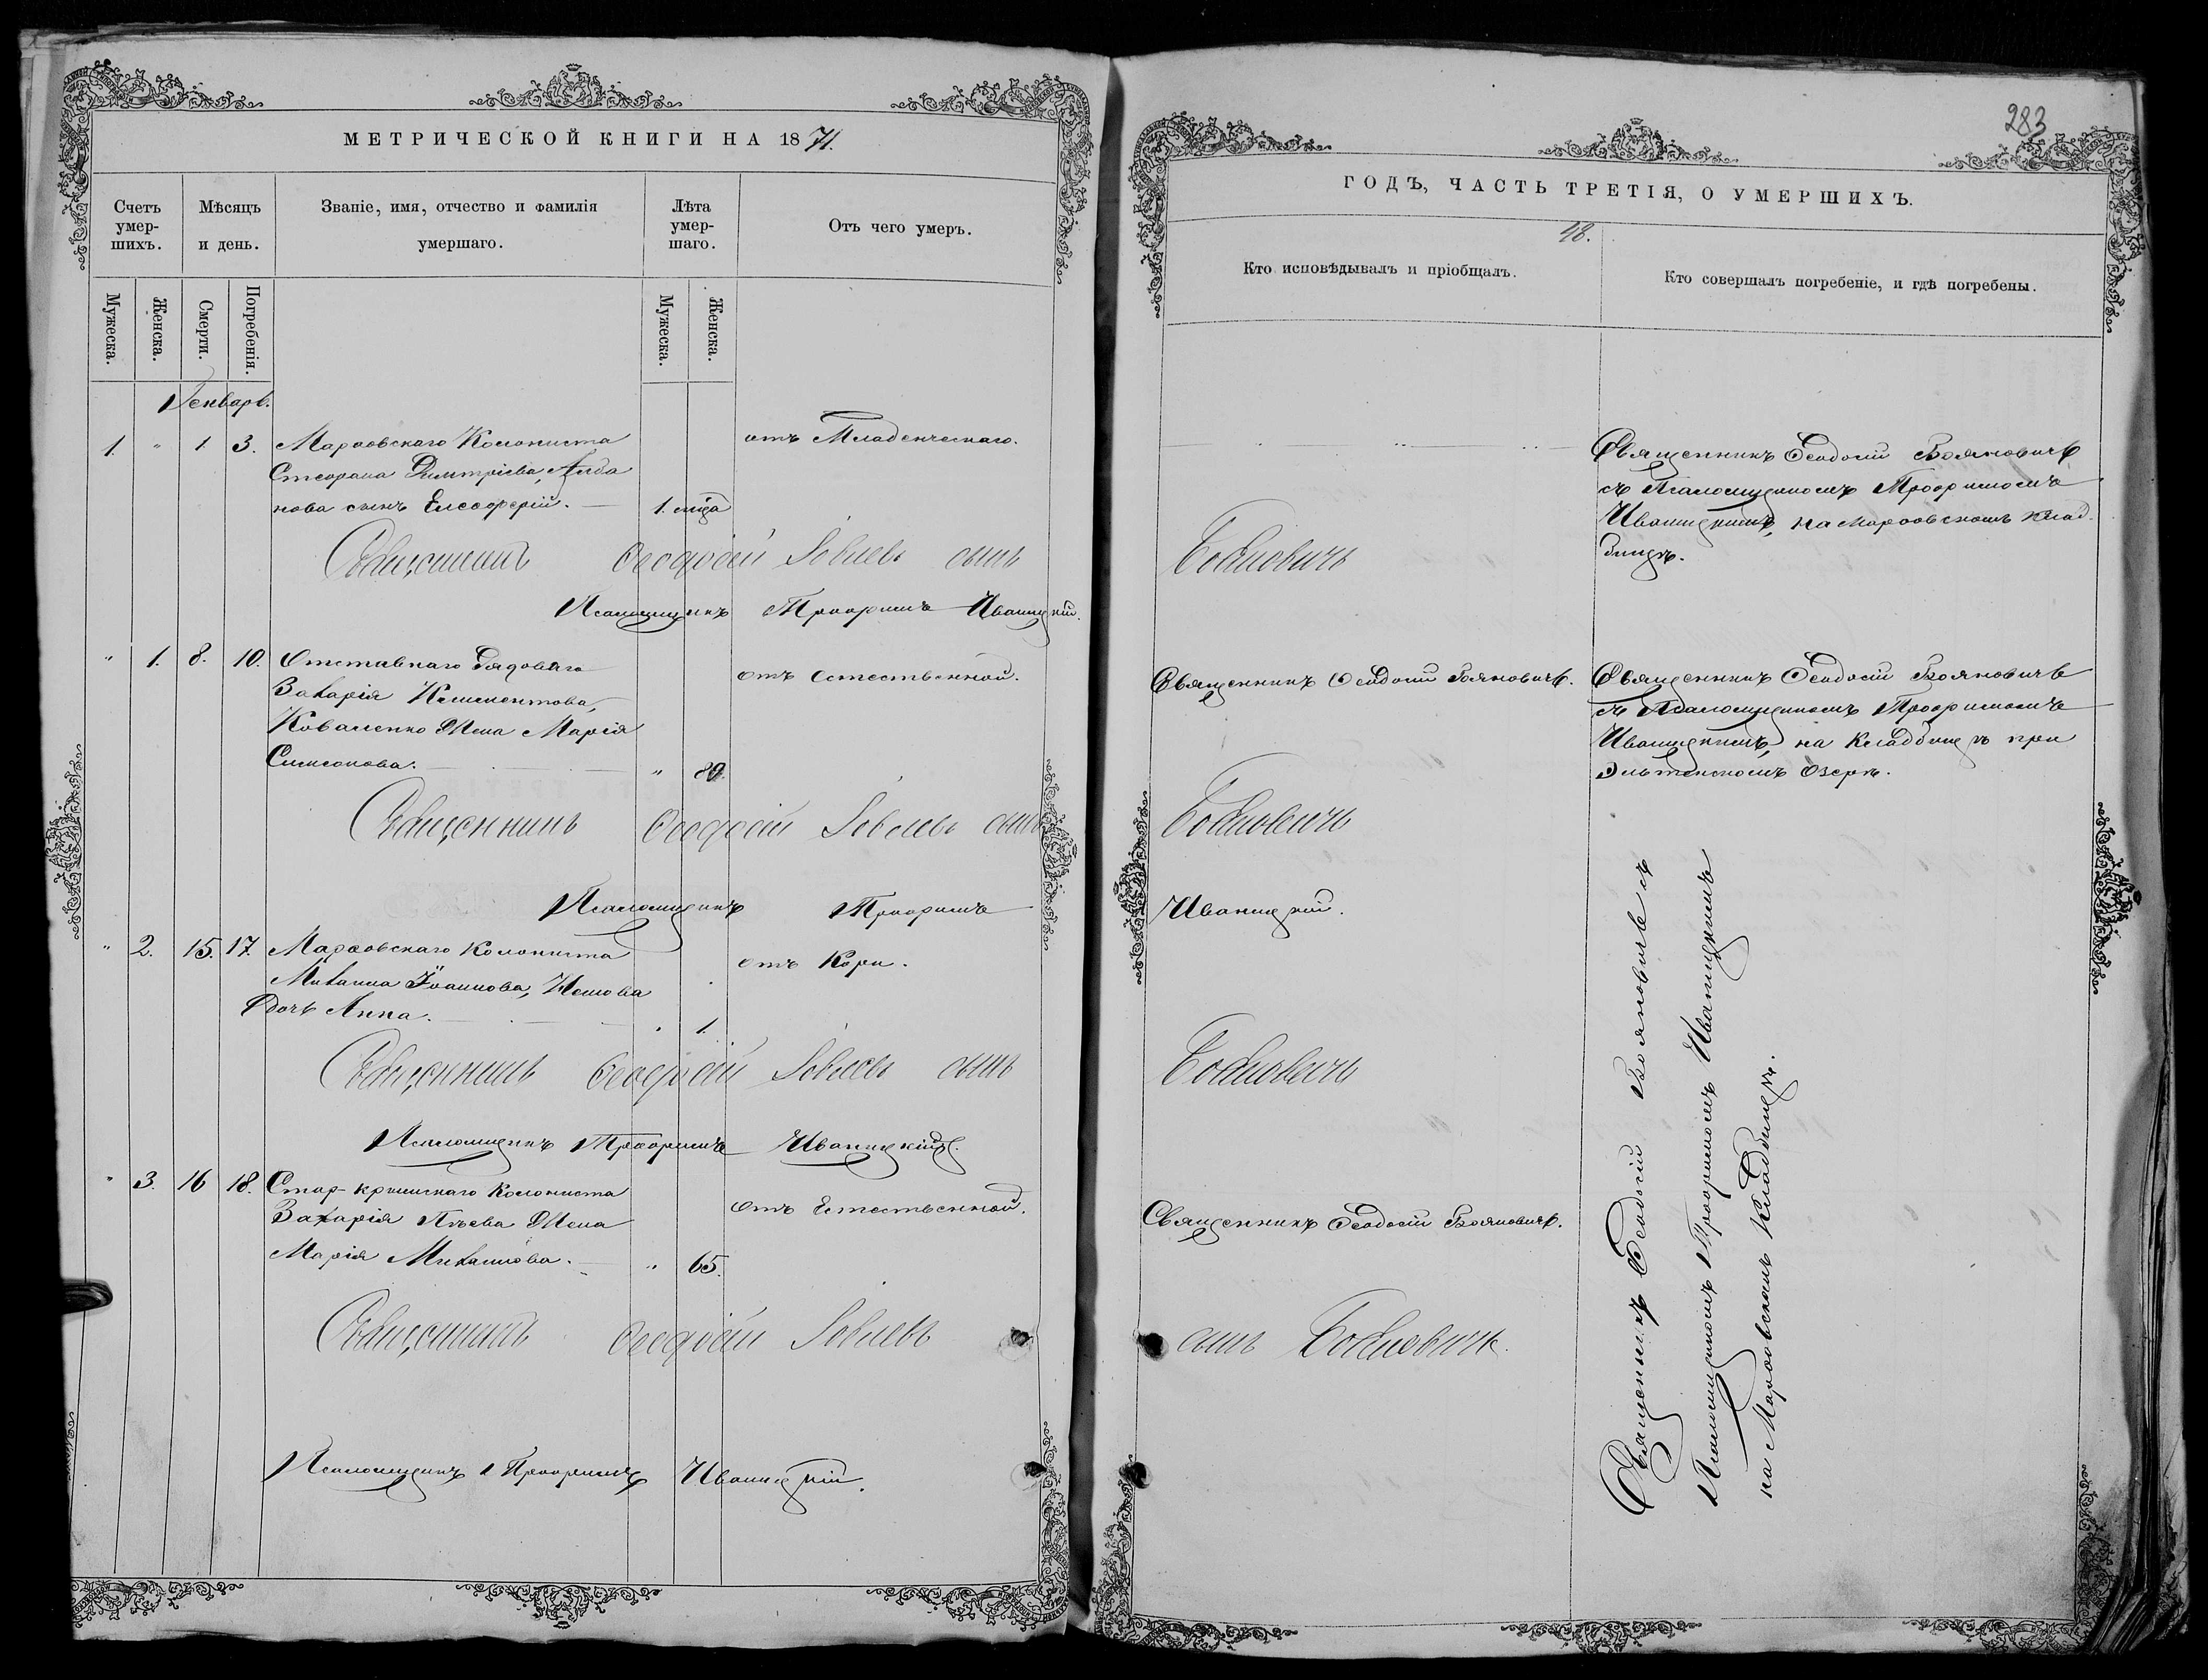 МЕТРИЧЕСКОЙ КНИГИ НА 1871.
Счетъ умер-шихъ.
Мѣсяцъ и день.
Званіе, имя, отчество и фамилія умершаго.
Лѣта умер-шаго.
Отъ чего умеръ.
Мужеска.
Женска.
Смерти.
Погребенія.
Мужеска.
Женска.
Генварь.
1. " 1. 3. Марфовскаго Колониста
отъ Младенческаго.
Стефана Димитріева,
нова сынъ Елеоферій. — 1. года
Священникъ Феодосій Іовлевъ сынъ
Псаломщикъ Трофимъ Иваницкій.
" 1. 8. 10. Отставнаго Рядоваго
отъ Естественной.
Захарія Климентова,
Коваленко Жена Марія
Симеонова. — " 80.
Священникъ Феодосій Іовлевъ сынъ
Псаломщикъ Трофимъ
" 2. 15. 17. Марфовскаго Колониста
отъ Кори.
Михаила Іоаннова,
дочь Анна. — 1.
Священникъ Феодосій Іовлевъ сынъ
Псаломщикъ Трофимъ Иваницкій.
" 3. 16 18. Стар-крымскаго Колониста
отъ Естественной.
Захарія Жена
Марія Михайлова. — " 65.
Священникъ Феодосій Іовлевъ
Псаломщикъ Трофимъ Иваницкій.
283
ГОДЪ, ЧАСТЬ ТРЕТІЯ, О УМЕРШИХЪ.
48.
Кто исповѣдывалъ и пріобщалъ.
Кто совершалъ погребеніе, и гдѣ погребены.
Священникъ Феодосій Бояновичъ
съ Псаломщикомъ Трофимомъ
Иваницкимъ, на Марфовскомъ клад-
бищѣ.
Бояновичъ
Священникъ Феодосій Бояновичъ.
Священникъ Феодосій Бояновичъ
съ Псаломщикомъ Трофимомъ
Иваницкимъ, на Кладбищѣ при
озерѣ.
Бояновичъ
Иваницкій.
Бояновичъ
Священникъ Феодосій Бояновичъ.
сынъ Бояновичъ.
Священникъ Феодосій Бояновичъ съ
Псаломщикомъ Трофимомъ Иваницкимъ
на Марфовскомъ Кладбищѣ.